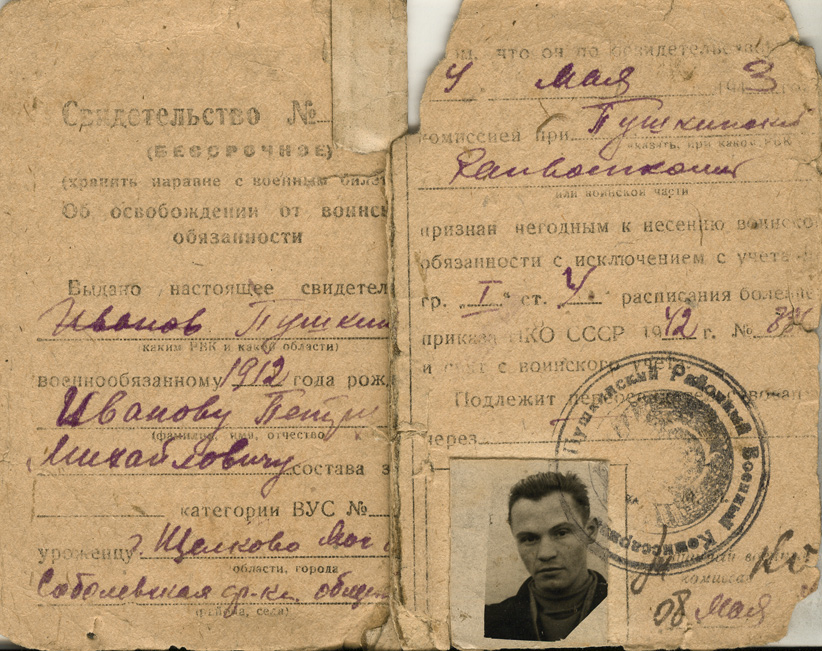 Свидетельство №
(БЕССРОЧНОЕ)
(хранить наравне с военным билет
Об освобождении от воинс
обязанности
Выдано настоящее свидетел
Иванов Пушкин
каким РВК и какой области)
военнообязанному 1912 года рож
Иванову Петру
(фамилия, имя, отчество
Михайловичу состава з
категории ВУС №
уроженцу г Щелково Мос
области, города
Соболевская ф-ка, общеж
(района, села)
что он по освидетельствов
4 мая 1943 го
комиссией при Пушкинский
указать, при каком РВК
Райвоенкомат
или воинской части
признан негодным к несению воинско
обязанности с исключением с учета
гр. „I“ ст. 4 расписания болезне
приказа НКО СССР 1942 г. №
и снят с воинского учета.
Подлежит переосвидетельствован
через
Пушкинский Районный Военный Комиссариат
комиссар
08 мая